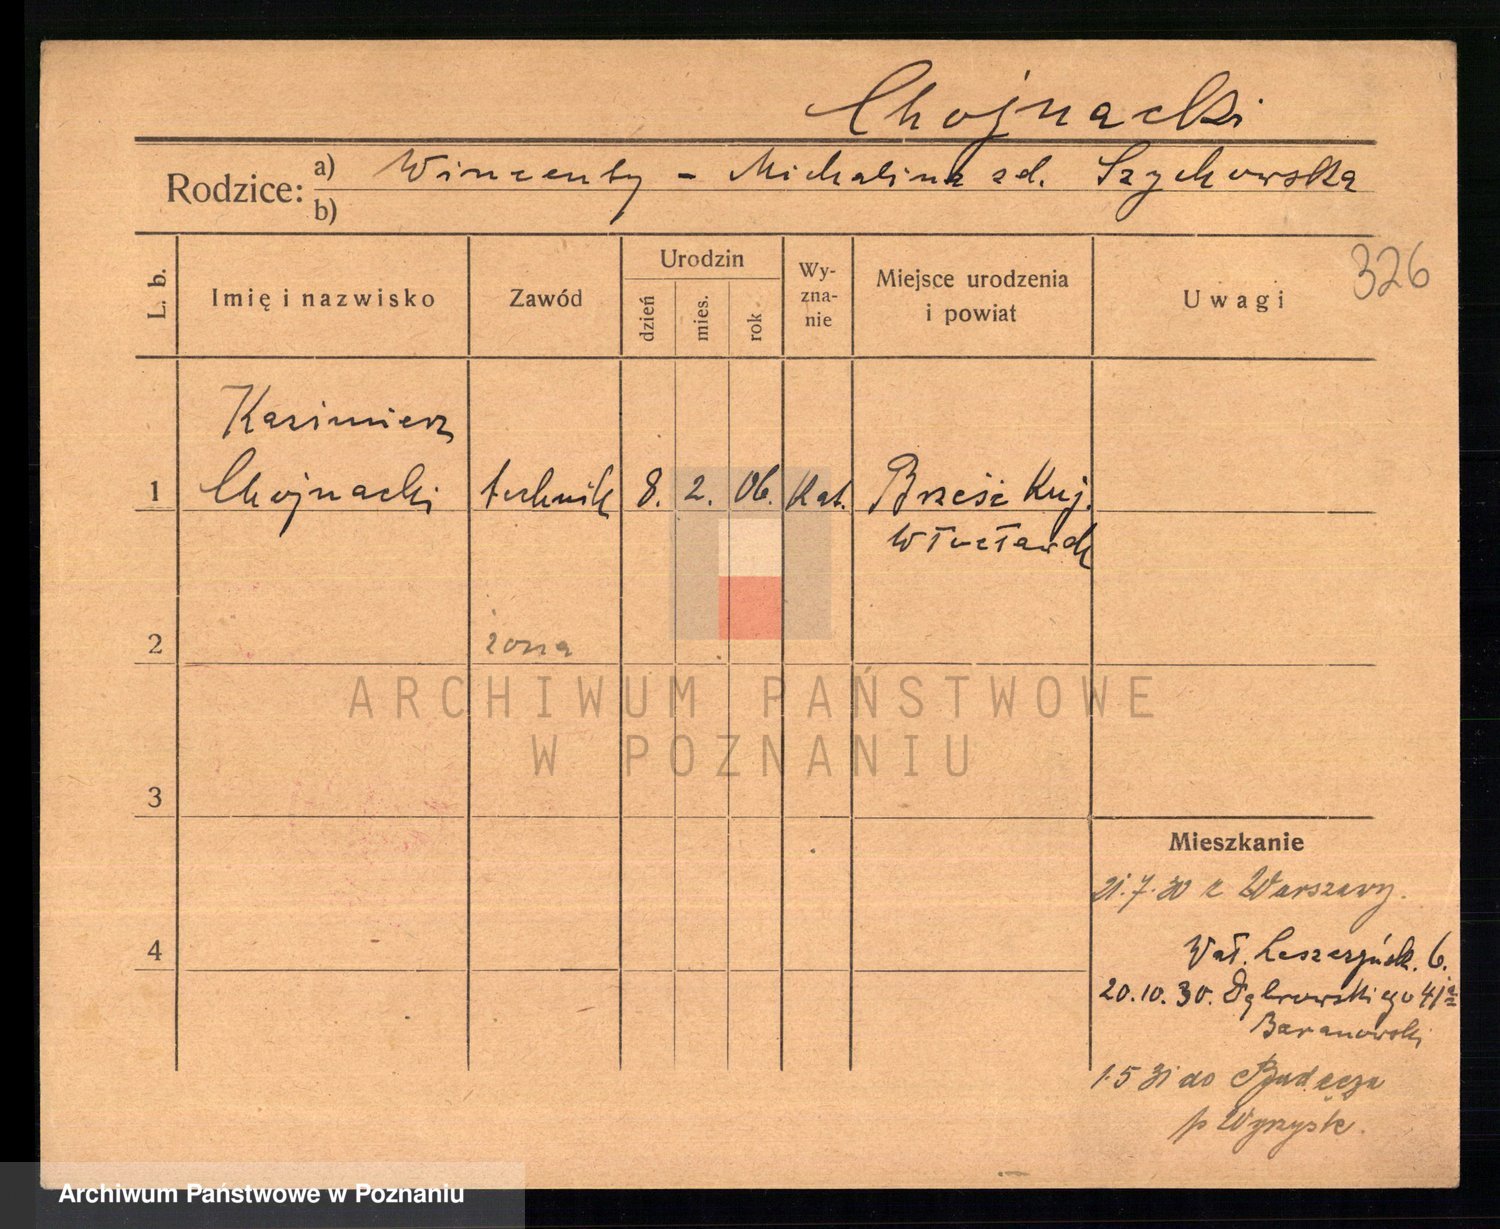 Chojnacki
Rodzice: a) Wincenty - Michalina zd. Szychowska
b)
326
L. b. Imię i nazwisko Zawód Urodzin dzień mies. rok Wy-zna-nie Miejsce urodzenia i powiat Uwagi
Kazimierz
1 Chojnacki technik 8. 2. 06. Kat. Brześć Kuj.
Włocławek
2 żona
ARCHIWUM PAŃSTWOWE
W POZNANIU
3
Mieszkanie
21.7.30 z Warszawy.
4
Wał. Leszczyńsk. 6.
20.10.30. Dąbrowskiego
Baranowski
1.5 31 do
p Wyrzysk.
Archiwum Państwowe w Poznaniu